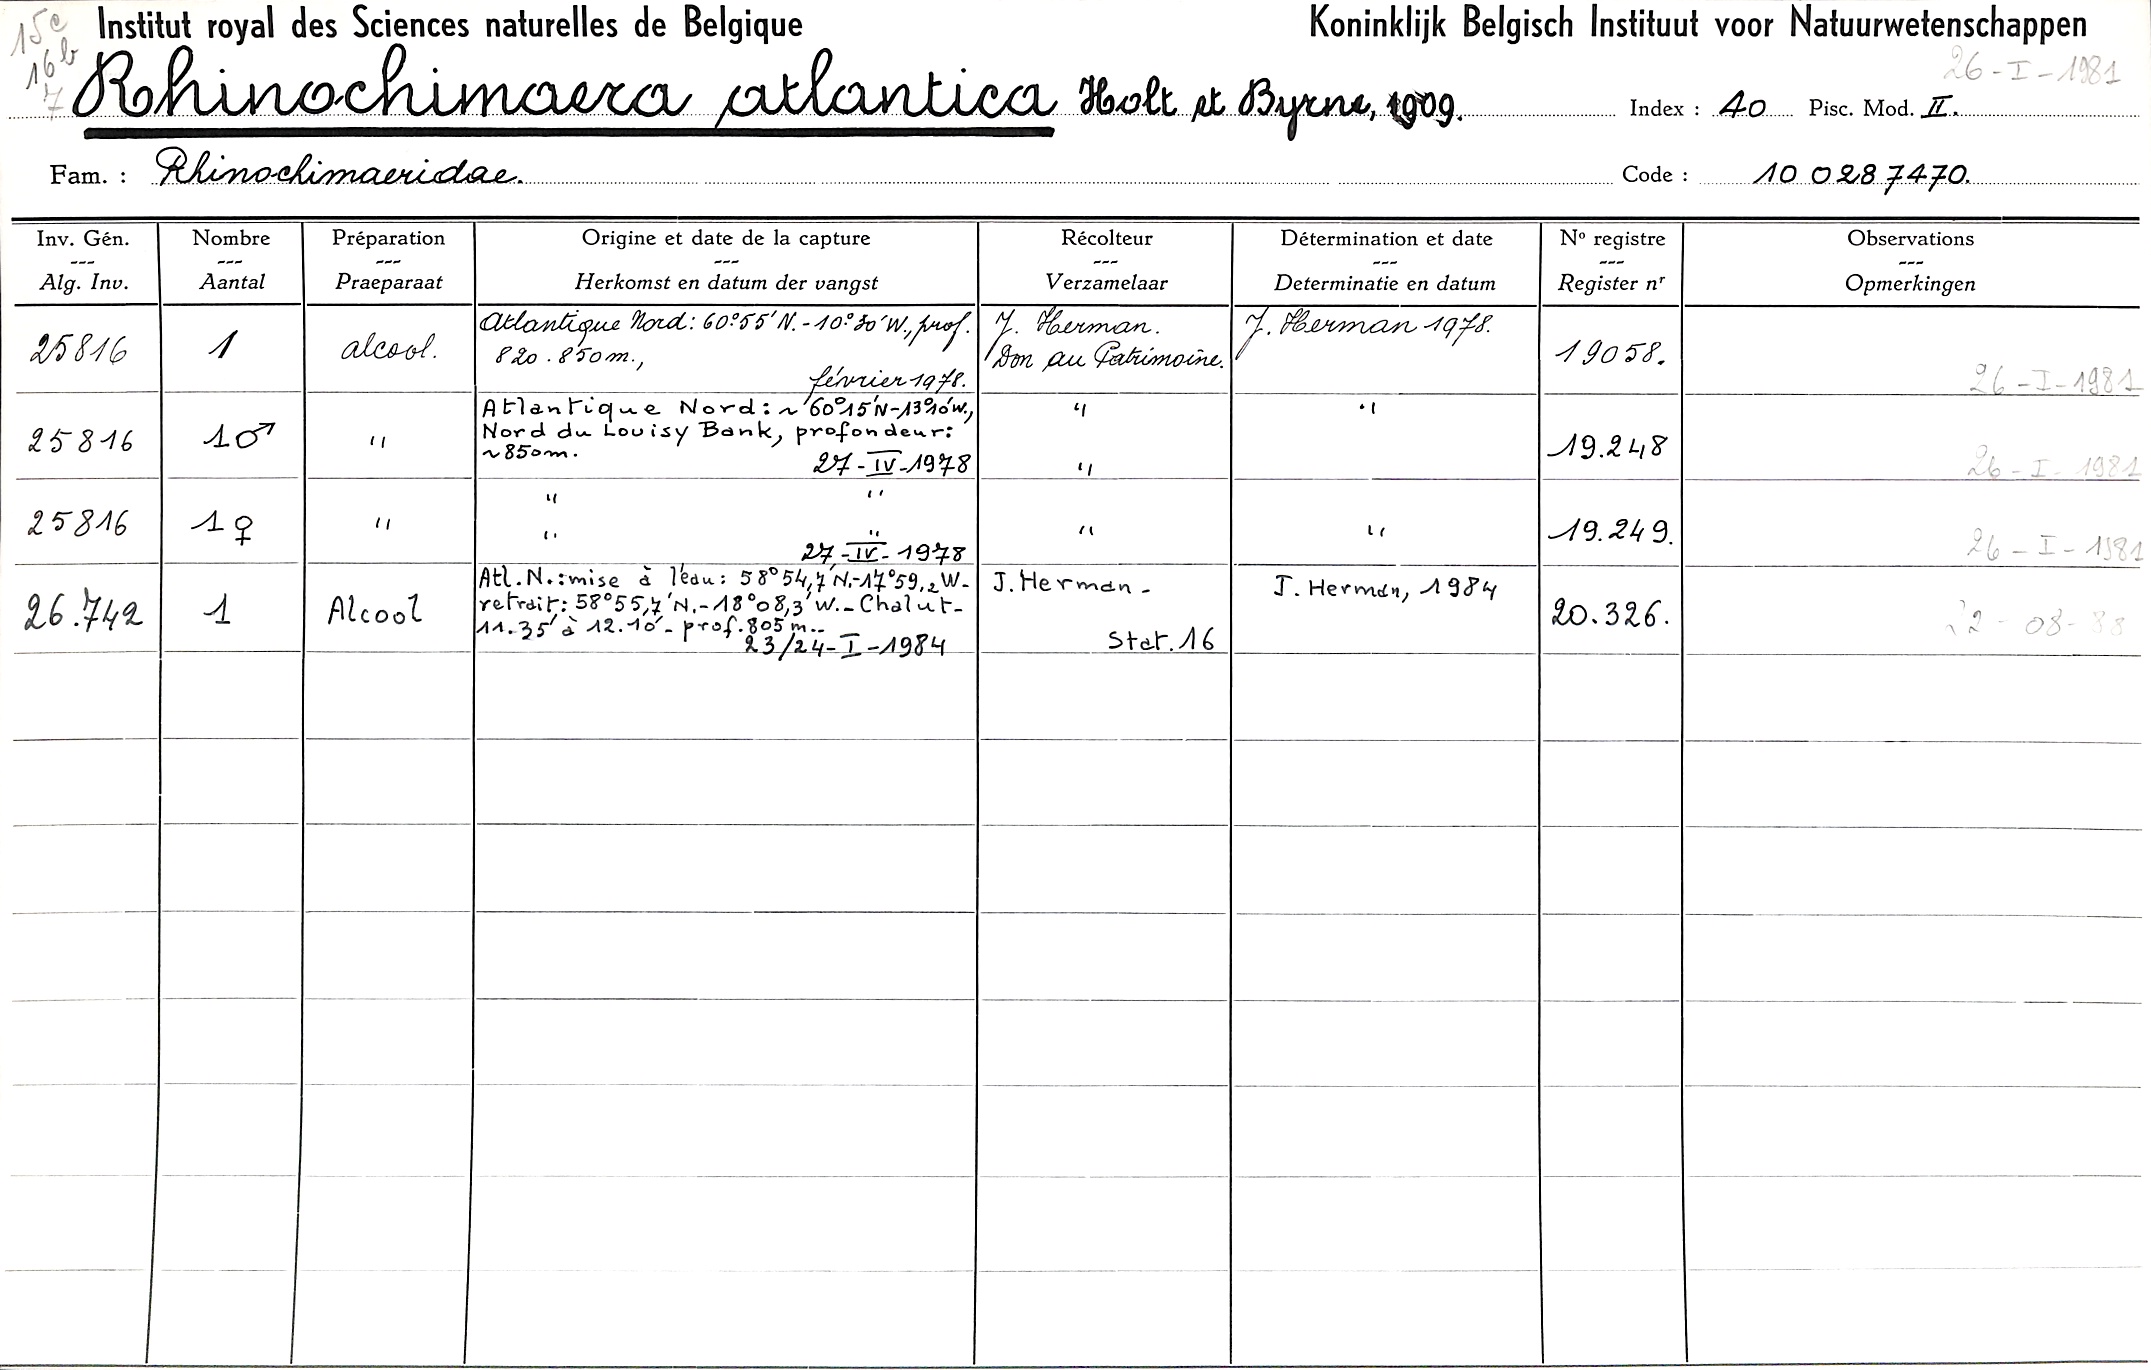 15c Institut royal des Sciences naturelles de Belgique Koninklijk Belgisch Instituut voor Natuurwetenschappen
16b 26-I-1981
7 Rhinochimaera atlantica Holt et Byrne, 1909. Index : 40 Pisc. Mod. II.
Fam. : Rhinochimaeridae. Code : 10 0287470.
Inv. Gén. Nombre Préparation Origine et date de la capture Récolteur Détermination et date No registre Observations
--- --- --- --- --- --- --- ---
Alg. Inv. Aantal Praeparaat Herkomst en datum der vangst Verzamelaar Determinatie en datum Register nr Opmerkingen
25816 1 alcool. Atlantique Nord: 60°55'N.-10°30'W., prof. J. Herman. J. Herman 1978. 19058.
820.850m., Don au Patrimoine.
février 1978. 26-I-1981
25816 1♂ " Atlantique Nord: ~60°15'N-13°10'W., " " 19.248
Nord du Louisy Bank, profondeur:
~850m. 27-IV-1978 " 26-I-1981
25816 1♀ " " " " " 19.249.
" "
27-IV-1978 26-I-1981
26.742 1 Alcool Atl. N.: mise à l'eau: 58°54,7'N.-17°59,2W- J. Herman- J. Herman, 1984 20.326.
retrait: 58°55,7'N.-18°08,3'W.- Chalut-
11.35' à 12.10'- prof. 805m.- 22-08-88
23/24-I-1984 Stat. 16